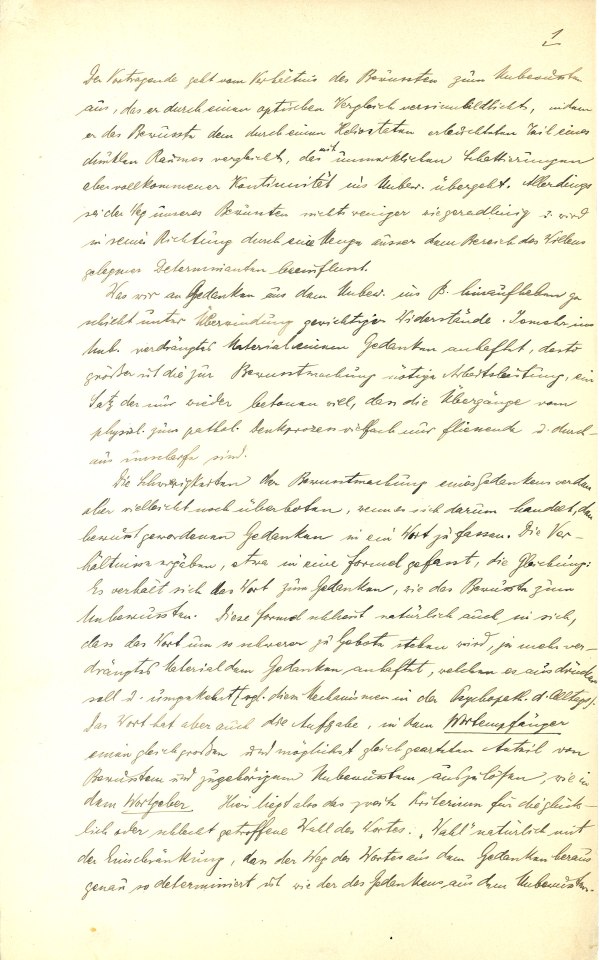 1
Der Vortragende geht vom Verhältnis des Bewussten zum Unbewussten
aus, das er durch einen optischen Vergleich versinnbildlicht, indem
er das Bewusste dem durch einen Heliostaten erleuchteten Teil eines
dunklen Raumes vergleicht, das mit unmerklichen Schattierungen
aber vollkommener Kontinuität ins Unbew. übergeht. Allerdings
sei der Weg unseres Bewussten nichts weniger wie geradlinig u. wird
in seiner Richtung durch eine Menge ausser dem Bereich des Willens
gelegener Determinanten beeinflusst.
Was wir an Gedanken aus dem Unbew. ins B. hinaufheben ge
schieht unter Überwindung gewichtiger Widerstände. Je mehr ins
Unb. verdrängtes Material einem Gedanken anhaftet, desto
größer ist die zur Bewusstmachung nötige Arbeitsleistung, ein
Satz der nur wieder betonen will, dass die Übergänge vom
physiol. zum pathol. Denkprozess vielfach nur fliessende u. durch-
aus unscharfe sind.
Die Schwierigkeiten der Bewusstmachung eines Gedankens werden
aber vielleicht noch überboten, wenn es sich darum handelt, den
bewusst gewordenen Gedanken in ein Wort zu fassen. Die Ver-
hältnisse ergeben, etwa in eine Formel gefasst, die Gleichung:
Es verhält sich das Wort zum Gedanken, wie das Bewusste zum
Unbewussten. Diese Formel schliesst natürlich auch in sich,
dass das Wort um so schwerer zu Gebote stehen wird, je mehr ver-
drängtes Material dem Gedanken anhaftet, welchen es ausdrücken
soll u. umgekehrt (vgl. diesen Mechanismen in der Psychopath. d. Alltags).
Das Wort hat aber auch die Aufgabe, in dem Wortempfänger
einen gleich großen und möglichst gleichgearteten Anteil von
Bewusstem und zugehörigem Unbewusstem auszulösen, wie in
dem Wortgeber. Hier liegt also das zweite Kriterium für die glück-
lich oder schlecht getroffene Wahl des Wortes: „Wahl" natürlich mit
der Einschränkung, dass der Weg des Wortes aus dem Gedanken heraus
genau so determiniert ist wie der des Gedankens aus dem Unbewussten.